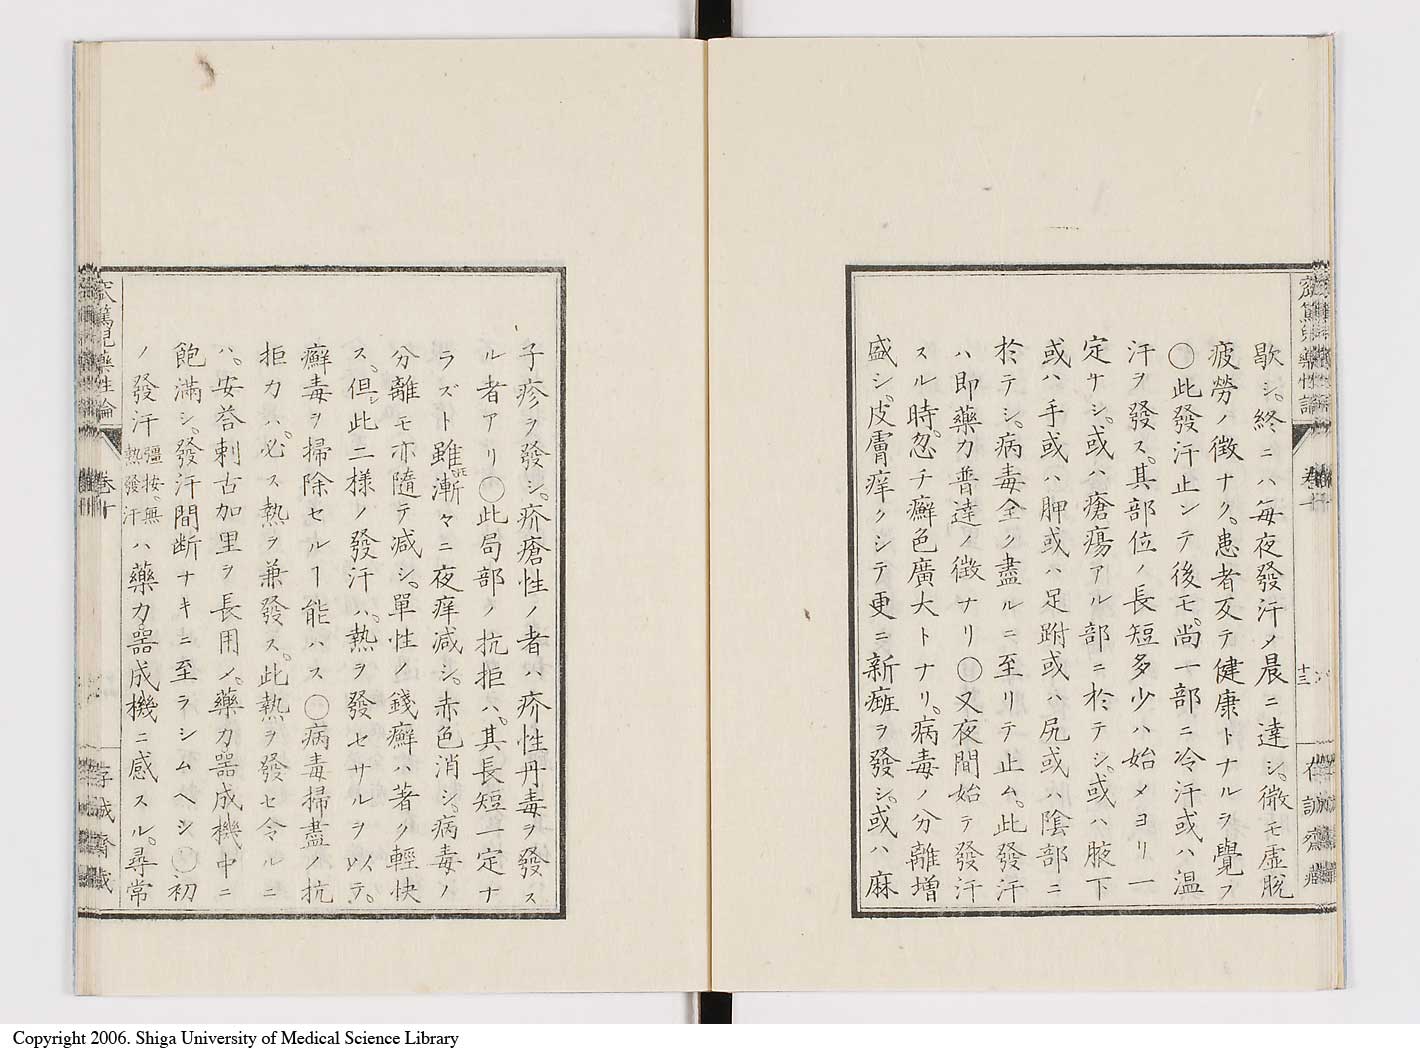 歇シ。終ニハ每夜發汗メ晨ニ達シ。微モ虛脫
疲勞ノ徵ナク。患者反テ健康トナルヲ覺フ
〇此發汗止ンテ後モ。尚一部ニ冷汗或ハ温
汗ヲ發ス。其部位ノ長短多少ハ始メヨリ一
定ナシ。或ハ瘡瘍アル部ニ於テシ。或ハ腋下
或ハ手或ハ胛或ハ足跗或ハ尻或ハ陰部ニ
於テシ。病毒全ク盡ルニ至リテ止ム。此發汗
ハ即藥力普達ノ徵ナリ〇又夜間始テ發汗
スル時。忽チ癬色廣大トナリ。病毒ノ分離增
盛シ。皮膚痒クシテ更ニ新痤ヲ發シ。或ハ麻
子疹ヲ發シ。疥瘡性ノ者ハ疥性丹毒ヲ發ス
ル者アリ〇此局部ノ抗拒ハ。其長短一定ナ
ラズト雖𪜈漸々ニ夜痒減シ。赤色消シ。病毒ノ
分離モ亦隨テ減シ。單性ノ錢癬ハ著ク輕快
ス。但シ此二様ノ發汗ハ。熱ヲ發セサルヲ以テ。
癬毒ヲ掃除セルヿ能ハス〇病毒掃盡ノ抗
拒力ハ。必ス熱ヲ兼發ス。此熱ヲ發セ令ルニ
ハ。安荅剌古加里ヲ長用メ。藥力器成機中ニ
飽滿シ。發汗間断ナキニ至ラシムヘシ〇初
ノ發汗 彊按。無熱發汗 ハ藥力器成機ニ感スル。尋常
窊篤兒藥性論
卷十
十三
存誠齋藏
窊篤兒藥性論
卷十
存誠齋藏
Copyright 2006. Shiga University of Medical Science Library